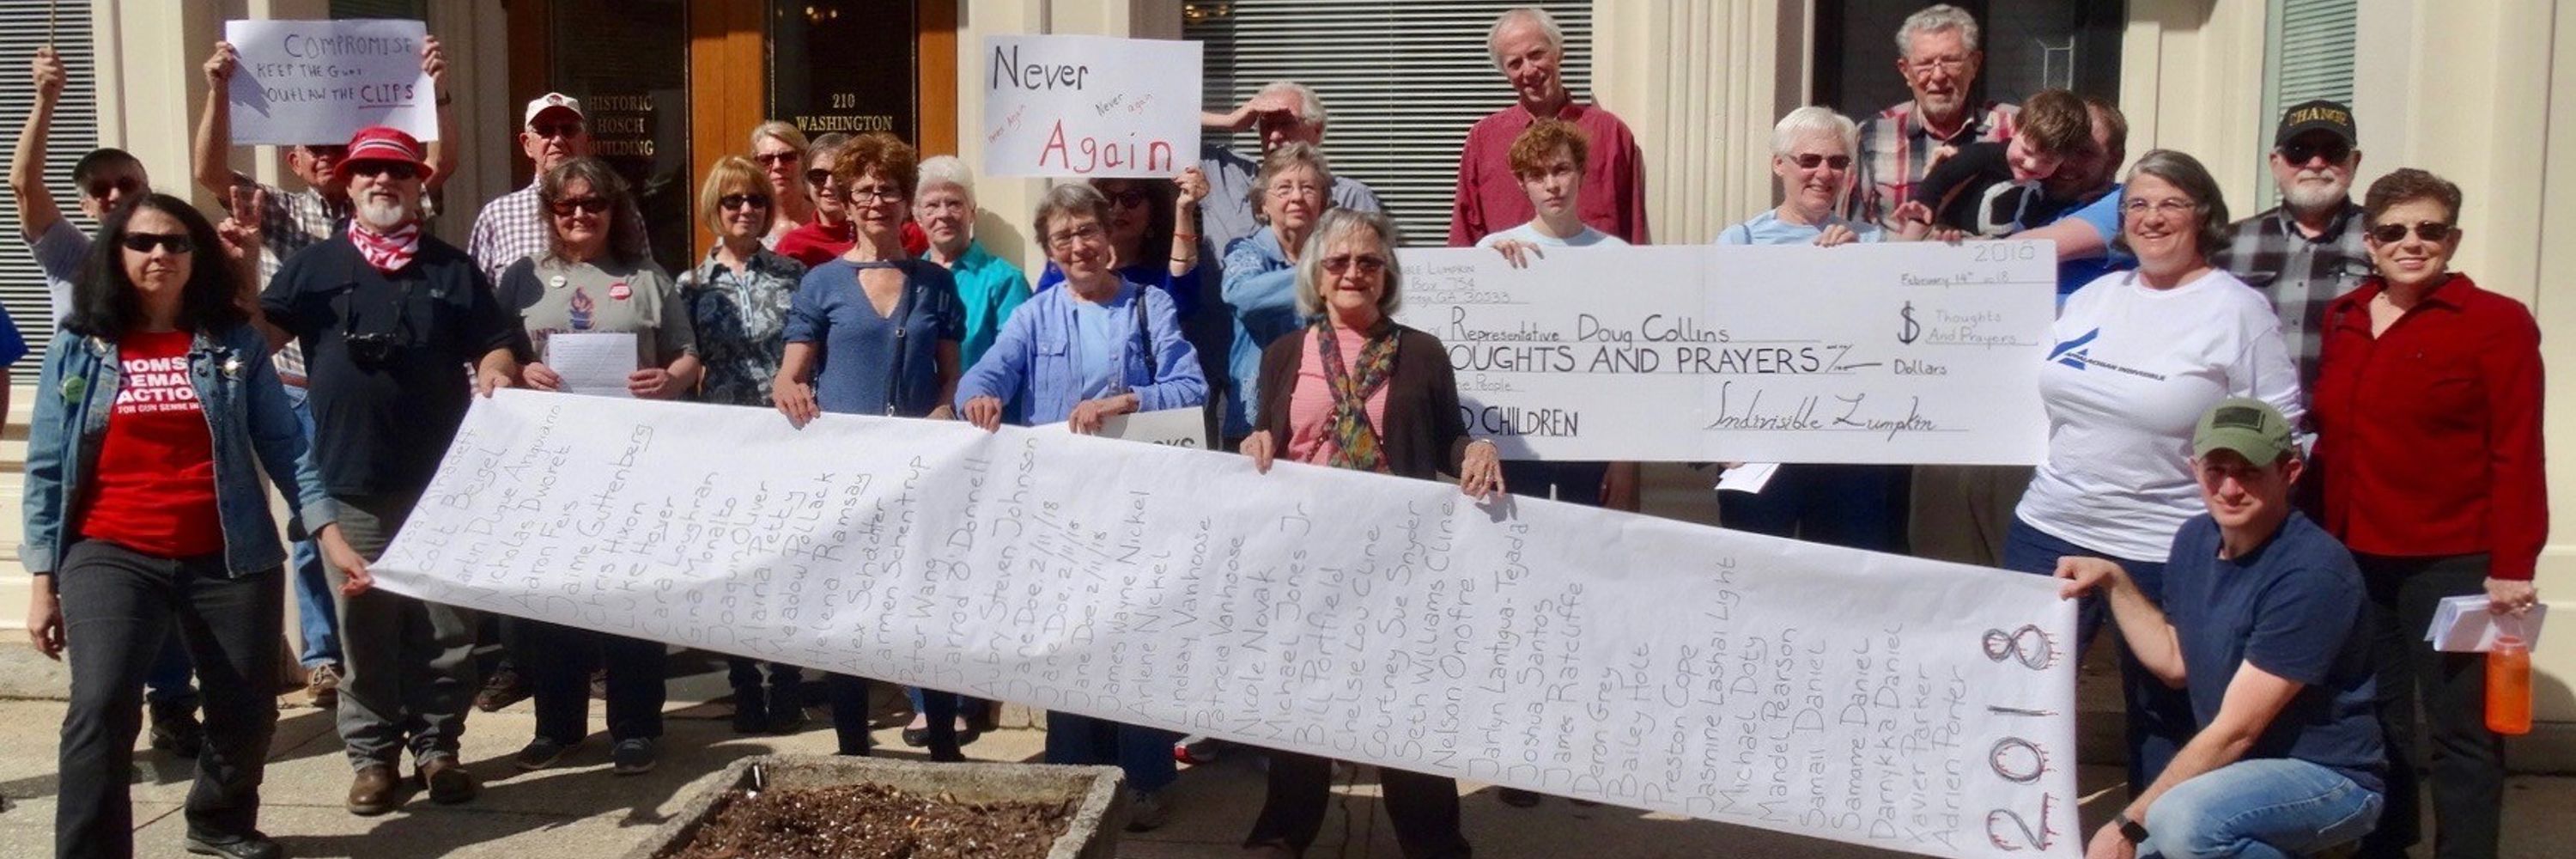 COMPROMISE
KEEP THE Guns
OUTLAW THE CLIPS
HISTORIC
HOSCH
BUILDING
210
WASHINGTON
Never
Never again
Never again
Again
CHANGE
MOMS
DEMAN
ACTION
FOR GUN SENSE IN
2018
BLE LUMPKIN
Box 754
GA 30533
February 14th 2018
of Representative Doug Collins
$ Thoughts
And Prayers
OUGHTS AND PRAYERS
Dollars
he People
D CHILDREN
Indivisible Lumpkin
APPALACHIAN INDIVISIBLE
Alyssa Alhadeff
Scott Beigel
Martin Duque Anguiano
Nicholas Dworet
Aaron Feis
Jaime Guttenberg
Chris Hixon
Luke Hoyer
Cara Loughran
Gina Monalto
Joaquin Oliver
Alaina Petty
Meadow Pollack
Helena Ramsay
Alex Schachter
Carmen Schentrup
Peter Wang
Jarrod O'Donnell
Aubry Steven Johnson
Jane Doe, 2/11/18
Jane Doe, 2/11/18
Jane Doe, 2/11/18
James Wayne Nickel
Arlene Nickel
Lindsay Vanhoose
Patricia Vanhoose
Nicole Novak
Michael Jones Jr
Bill Portfield
Chelsie Lou Cline
Courtney Sue Snyder
Seth Williams Cline
Nelson Onofre
Jarlyn Lantigua-Tejada
Joshua Santos
James Ratcliffe
Deron Grey
Bailey Holt
Preston Cope
Jasmine Lashai Light
Michael Doty
Mandel Pearson
Samail Daniel
Samame Daniel
Darnykka Daniel
Xavier Parker
Adrien Porter
2018